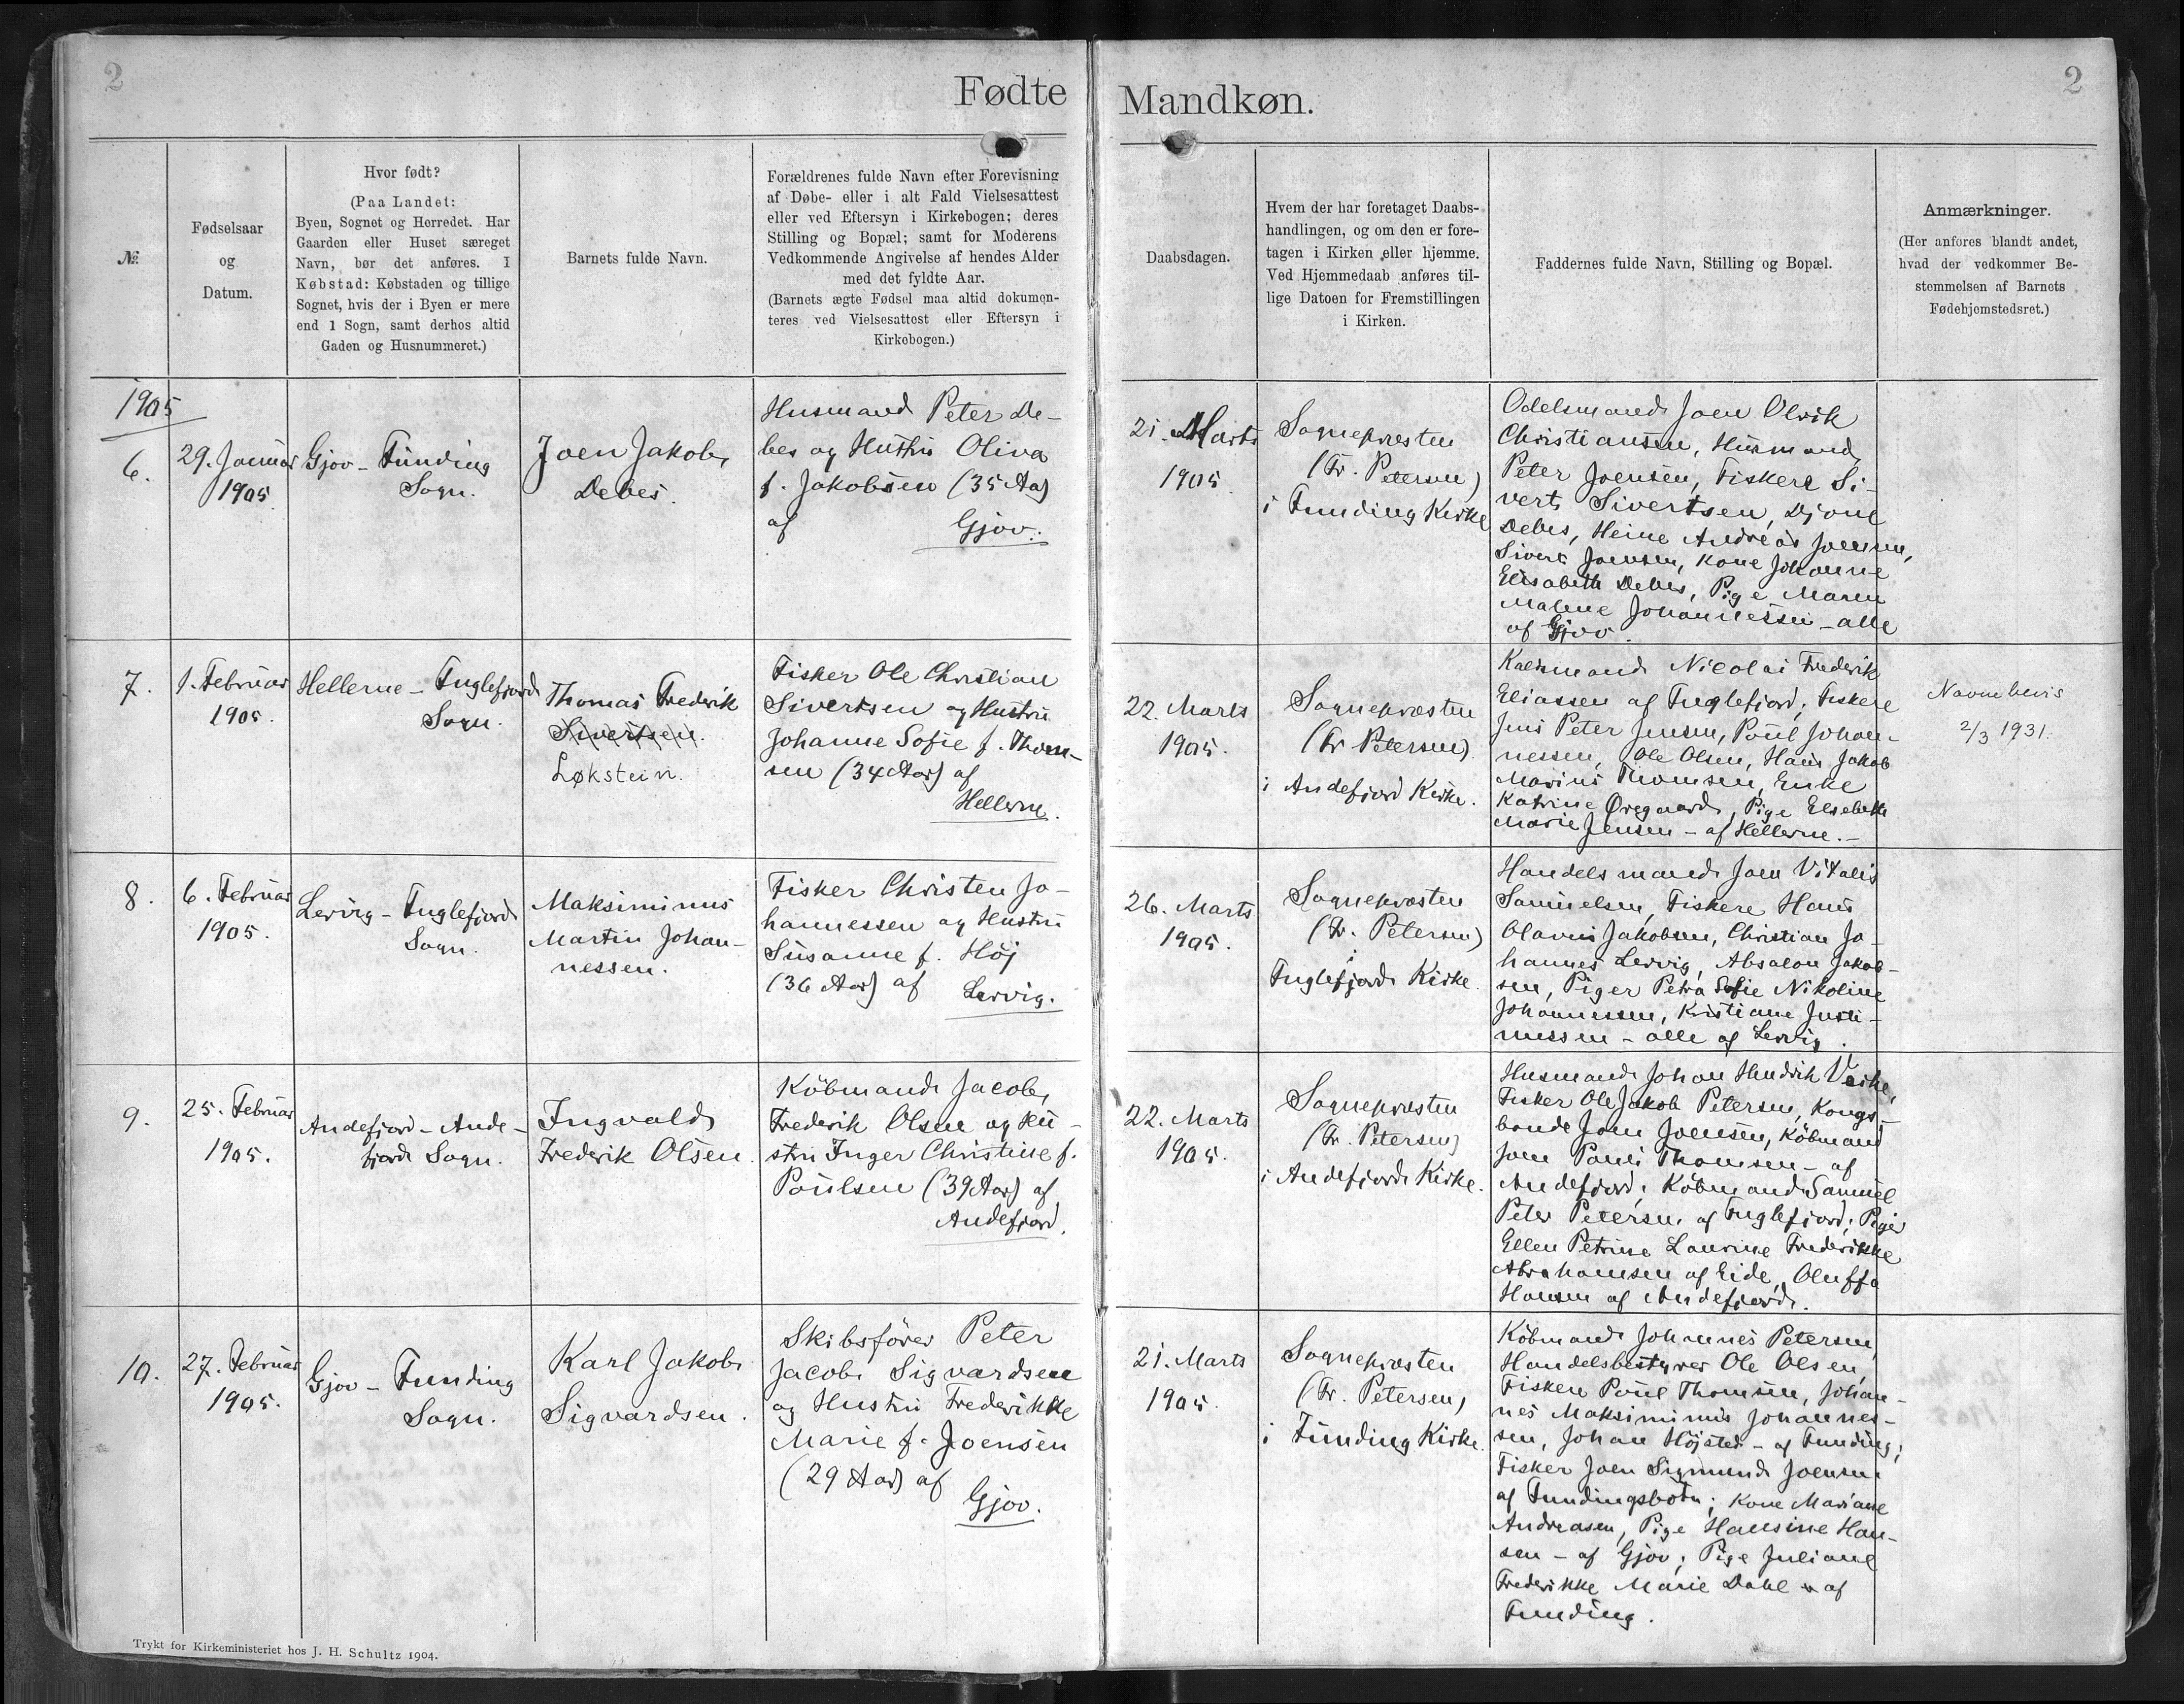 2
Fødte
Mandkøn.
2
№
Fødselsaar
og
Datum.
Hvor født?
(Paa Landet:
Byen, Sognet og Herredet. Har
Gaarden eller Huset særeget
Navn, bør det anføres. I
Købstad: Købstaden og tillige
Sognet, hvis der i Byen er mere
end 1 Sogn, samt derhos altid
Gaden og Husnummeret.)
Barnets fulde Navn.
Forældrenes fulde Navn efter Forevisning
af Døbe- eller i alt Fald Vielsesattest
eller ved Eftersyn i Kirkebogen; deres
Stilling og Bopæl; samt for Moderens
Vedkommende Angivelse af hendes Alder
med det fyldte Aar.
(Barnets ægte Fødsel maa altid dokumen-
teres ved Vielsesattest eller Eftersyn i
Kirkebogen.)
Daabsdagen.
Hvem der har foretaget Daabs-
handlingen, og om den er fore-
tagen i Kirken eller hjemme.
Ved Hjemmedaab anføres til-
lige Datoen for Fremstillingen
i Kirken.
Faddernes fulde Navn, Stilling og Bopæl.
Anmærkninger.
(Her anføres blandt andet,
hvad der vedkommer Be-
stemmelsen af Barnets
Fødehjemstedsret.)
1905
6.
29. Januar
1905.
Gjov - Funding
Sogn.
Joen Jakob
Debes.
Husmand Peter De-
bes og Hustru Oliva
f. Jakobsen (35 Aar)
af Gjov.
21. Marts
1905.
Sognepræsten
(Fr. Petersen)
i Funding Kirke
Odelsmand Joen Olvik
Christiansen, Husmand
Peter Joensen, Fiskere Si-
vert Sivertsen, Djone
Debes, Heine Andreas Joensen,
Sivert Joensen, Kone Johanne
Elisabeth Debes, Pige Maren
Malene Johannessen - alle
af Gjov.
7.
1. Februar
1905.
Hellerne - Fuglefjord
Sogn.
Thomas Frederik
Sivertsen.
Løkstein.
Fisker Ole Christian
Sivertsen og Hustru
Johanne Sofie f. Thom-
sen (34 Aar) af
Hellerne.
22. Marts
1905.
Sognepræsten
(Fr. Petersen)
i Andefjord Kirke.
Nicolai Frederik
Eliassen af Fuglefjord; Fiskere
Jens Peter Jensen, Poul Johan-
nessen, Ole Olsen, Hans Jakob
Marius Thomsen, Enke
Katrine Øregaard, Pige Elsebeth
Marie Jensen - af Hellerne.-
Navnebevis
2/3 1931.
8.
6. Februar
1905.
Lervig - Fuglefjord
Sogn.
Maksiminus
Martin Johan-
nessen.
Fisker Christen Jo-
hannessen og Hustru
Susanne f. Höj
(36 Aar) af Lervig.
26. Marts
1905.
Sognepræsten
(Fr. Petersen)
i
Fuglefjord Kirke.
Handelsmand Joen Vitalis
Samuelsen, Fiskere Hans
Olavus Jakobsen, Christian Jo-
hannes Lervig, Absalon Jakob-
sen, Piger Petra Sofie Nikoline
Johannessen, Kristiane Justi-
nussen - alle af Lervig.
9.
25. Februar
1905.
Andefjord - Ande-
fjord Sogn.
Ingvald
Frederik Olsen.
Köbmand Jacob
Frederik Olsen og Hu-
stru Inger Christine f.
Poulsen (39 Aar) af
Andefjord.
22. Marts
1905.
Sognepræsten
(Fr. Petersen)
i Andefjord Kirke.
Husmand Johan Hendrik Veihe,
Fisker Ole Jakob Petersen, Kongs-
bonde Joen Joensen, Köbmand
Joen Pauli Thomsen - af
Andefjord; Köbmand Samuel
Peter Petersen af Fuglefjord; Piger
Ellen Petrine Laurine Frederikke
Abrahamsen af Eide, Oluffa
Hansen af Andefjord.
10.
27. Februar
1905.
Gjov - Funding
Sogn.
Karl Jakob
Sigvardsen.
Skibsförer Peter
Jacob Sigvardsen
og Hustru Frederikke
Marie f. Joensen
(29 Aar) af
Gjov.
21. Marts
1905.
Sognepræsten
(Fr. Petersen)
i Funding Kirke.
Köbmand Johannes Petersen,
Handelsbestyrer Ole Olsen,
Fiskere Poul Thomsen, Johan-
nes Maksiminus Johannes-
sen, Johan Höjsted - af Funding;
Fisker Joen Sigmund Joensen
af Fundingsbotn; Kone Mariane
Andreasen, Pige Hansine Han-
sen - af Gjov; Pige Juliane
Frederikke Marie Dahl af
Funding.
Trykt for Kirkeministeriet hos J. H. Schultz 1904.